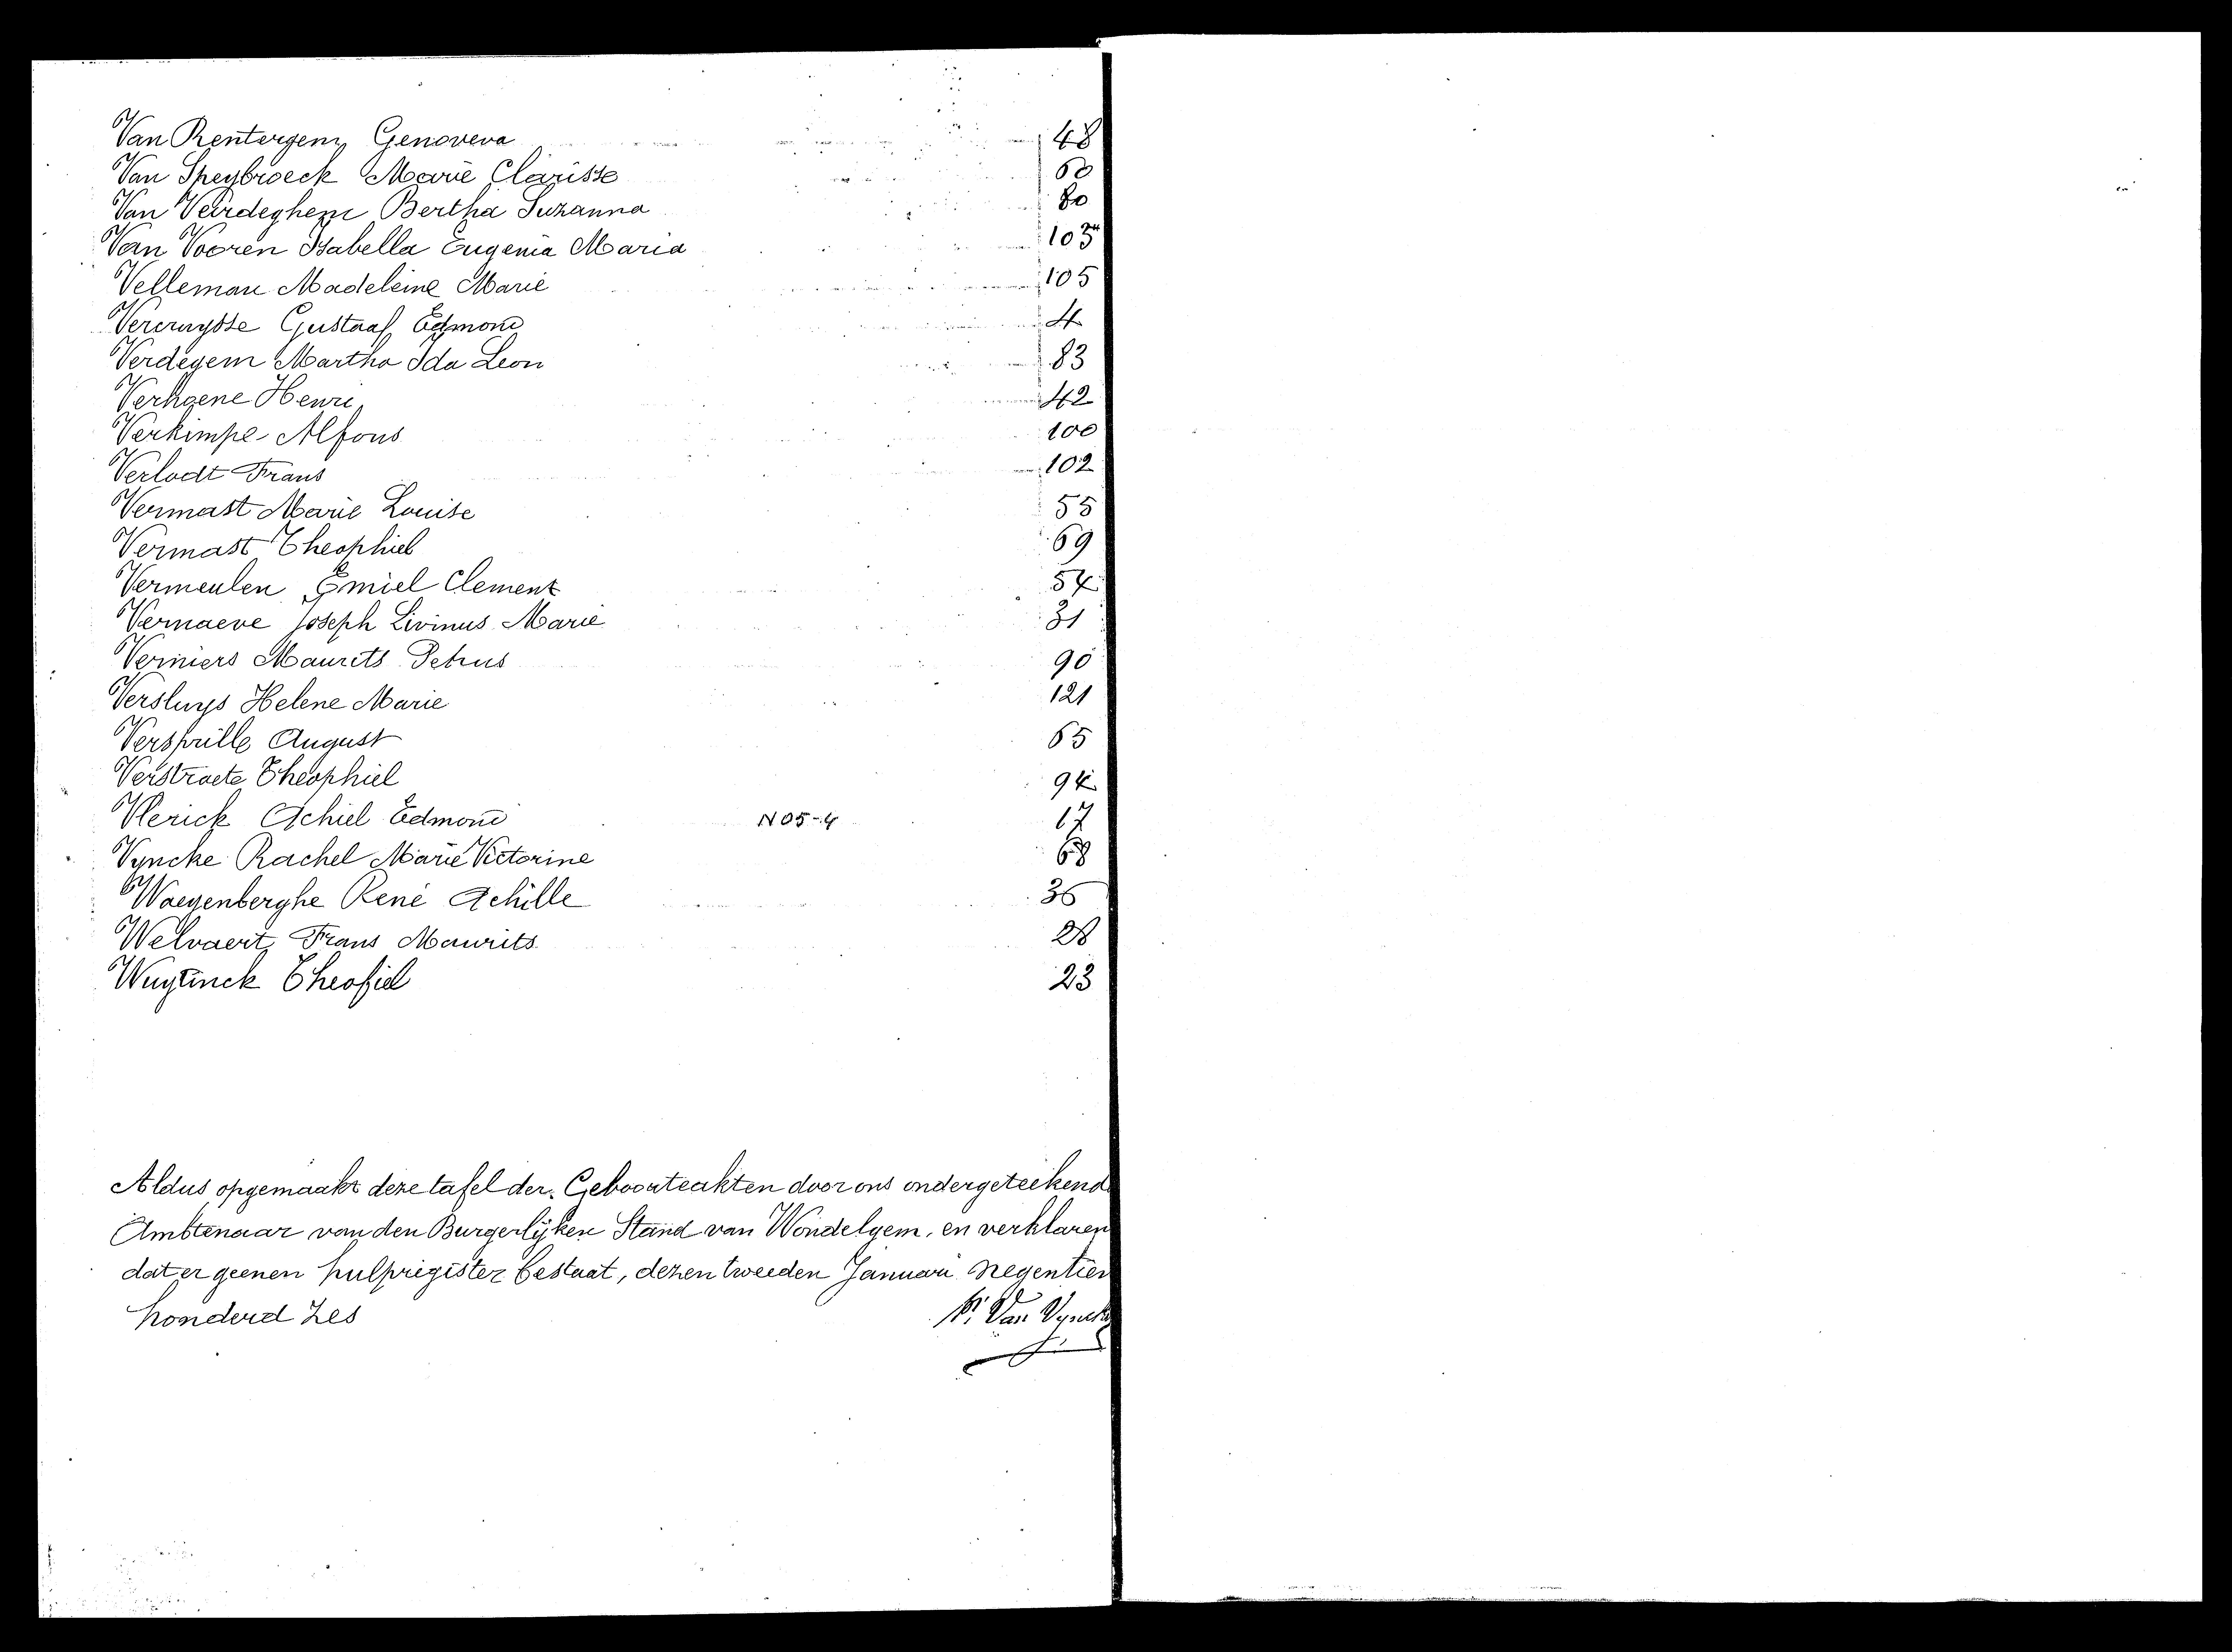 Van Rentergem Genoveva 48
Van Speybroeck Marie Clarisse 60
Van Veirdeghem Bertha Suzanna 80
Van Vooren Isabella Eugenia Maria 103
Velleman Madeleine Marie 105
Vercruysse Gustaaf Edmond 4
Verdegem Martha Ida Leon 83
Verhoene Henri 42
Verkimpe Alfons 100
Verlodt Frans 102
Vermast Marie Louise 55
Vermast Theophiel 69
Vermeulen Emiel Clement 54
Vernaeve Joseph Livinus Marie 31
Verniers Maurits Petrus 90
Versluys Helene Marie 121
Versprille August 65
Verstraete Theophiel 94
Vlerick Achiel Edmond N 05-4 17
Vyncke Rachel Marie Victorine 68
Waeyenberghe René Achille 36
Welvaert Frans Maurits 28
Wuytinck Theofiel 23
Aldus opgemaakt deze tafel der Geboorteakten door ons ondergeteekend
Ambtenaar van den Burgerlijken Stand van Wondelgem, en verklaren
dat er geenen hulpregister bestaat, dezen tweeden Januari negentien
honderd zes